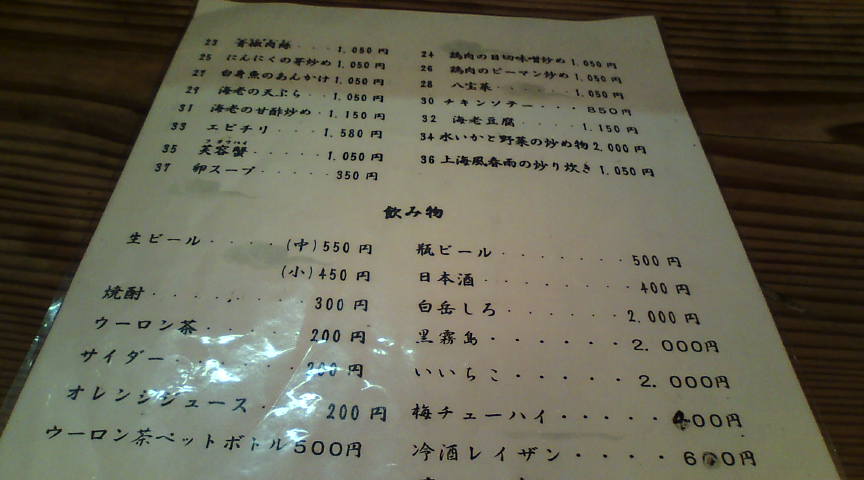 23 青椒肉絲・・・1,050円
25 にんにくの芽炒め 1,050円
27 白身魚のあんかけ 1,050円
29 海老の天ぷら・・1,050円
31 海老の甘酢炒め・1,150円
33 エビチリ・・・・1,580円
35 芙容蟹・・・・・1,050円
37 卵スープ・・・・・350円
24 鶏肉の目切味噌炒め 1,050円
26 鶏肉のピーマン炒め 1,050円
28 八宝菜・・・・・・1,050円
30 チキンソテー・・・850円
32 海老豆腐・・・・・1,150円
34 水いかと野菜の炒め物 2,000円
36 上海風春雨の炒り炊き 1,050円
飲み物
生ビール・・・・(中)550円
(小)450円
焼酎・・・・・・・・300円
ウーロン茶・・・・・200円
サイダー・・・・・・200円
オレンジジュース・・200円
ウーロン茶ペットボトル500円
瓶ビール・・・・・・・500円
日本酒・・・・・・・・400円
白岳しろ・・・・・・2.000円
黒霧島・・・・・・・2.000円
いいちこ・・・・・・2.000円
梅チューハイ・・・・・400円
冷酒レイザン・・・・600円